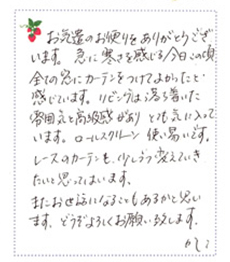 お気遣のお便りをありがとうござ
います。急に寒さを感じる今日この頃
全ての窓にカーテンをつけてよかったと
感じています。リビングは落ち着いた
雰囲気と高級感があり とても気に入って
います。ロールスクリーン 使い易いです。
レースのカーテンも、少しづつ変えていき
たいと思っています。
またお世話になることもあるかと思い
ます、どうぞよろしくお願い致します。
かしこ